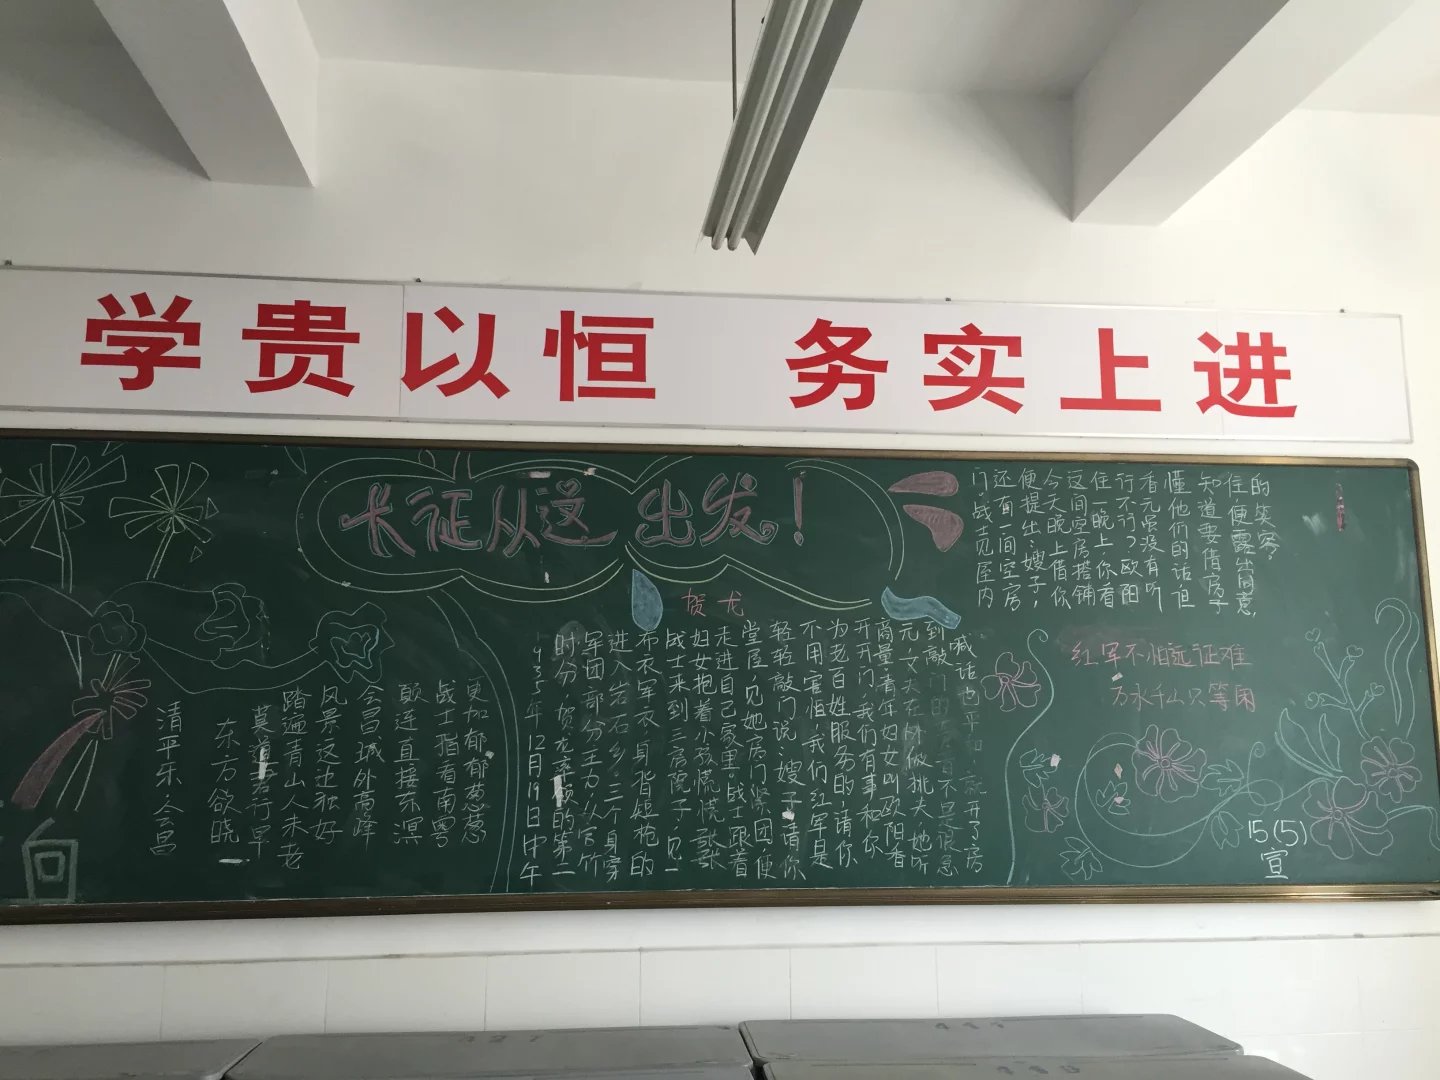 学贵以恒 务实上进
长征从这出发！
清平乐会昌
东方欲晓
莫道君行早
踏遍青山人未老
风景这边独好
会昌城外高峰
颠连直接东溟
战士指看南粤
更加郁郁葱葱
贺龙
1935年12月19日中午
时分，贺龙率领的第二
军团部分主力从官竹
进入岩石乡，三个身穿
布衣军衣，身背短枪的
战士来到三房院子，见一
妇女抱着小孩慌慌张张
走进自己家里，战士跟着
堂屋，见她房门紧团，便
轻轻敲门说：嫂子，请你
不用害怕，我们红军是
为老百姓服务的，请你
开开门，我们有事和你
商量着年妇女叫欧阳看
元，丈夫在外做挑夫，她听
到敲门的声音不是很急
喊话也平和，就开了房
门，战士见屋内
还有一间空房
便提出：嫂子，
今天晚上借你
这间空房搭铺
住一晚上，你看
行不行？欧阳
看元虽没有听
懂他们的话但
知道要借房子
住便露出同意
的笑容。
红军不怕远征难
万水千山只等闲
15(5)
宣